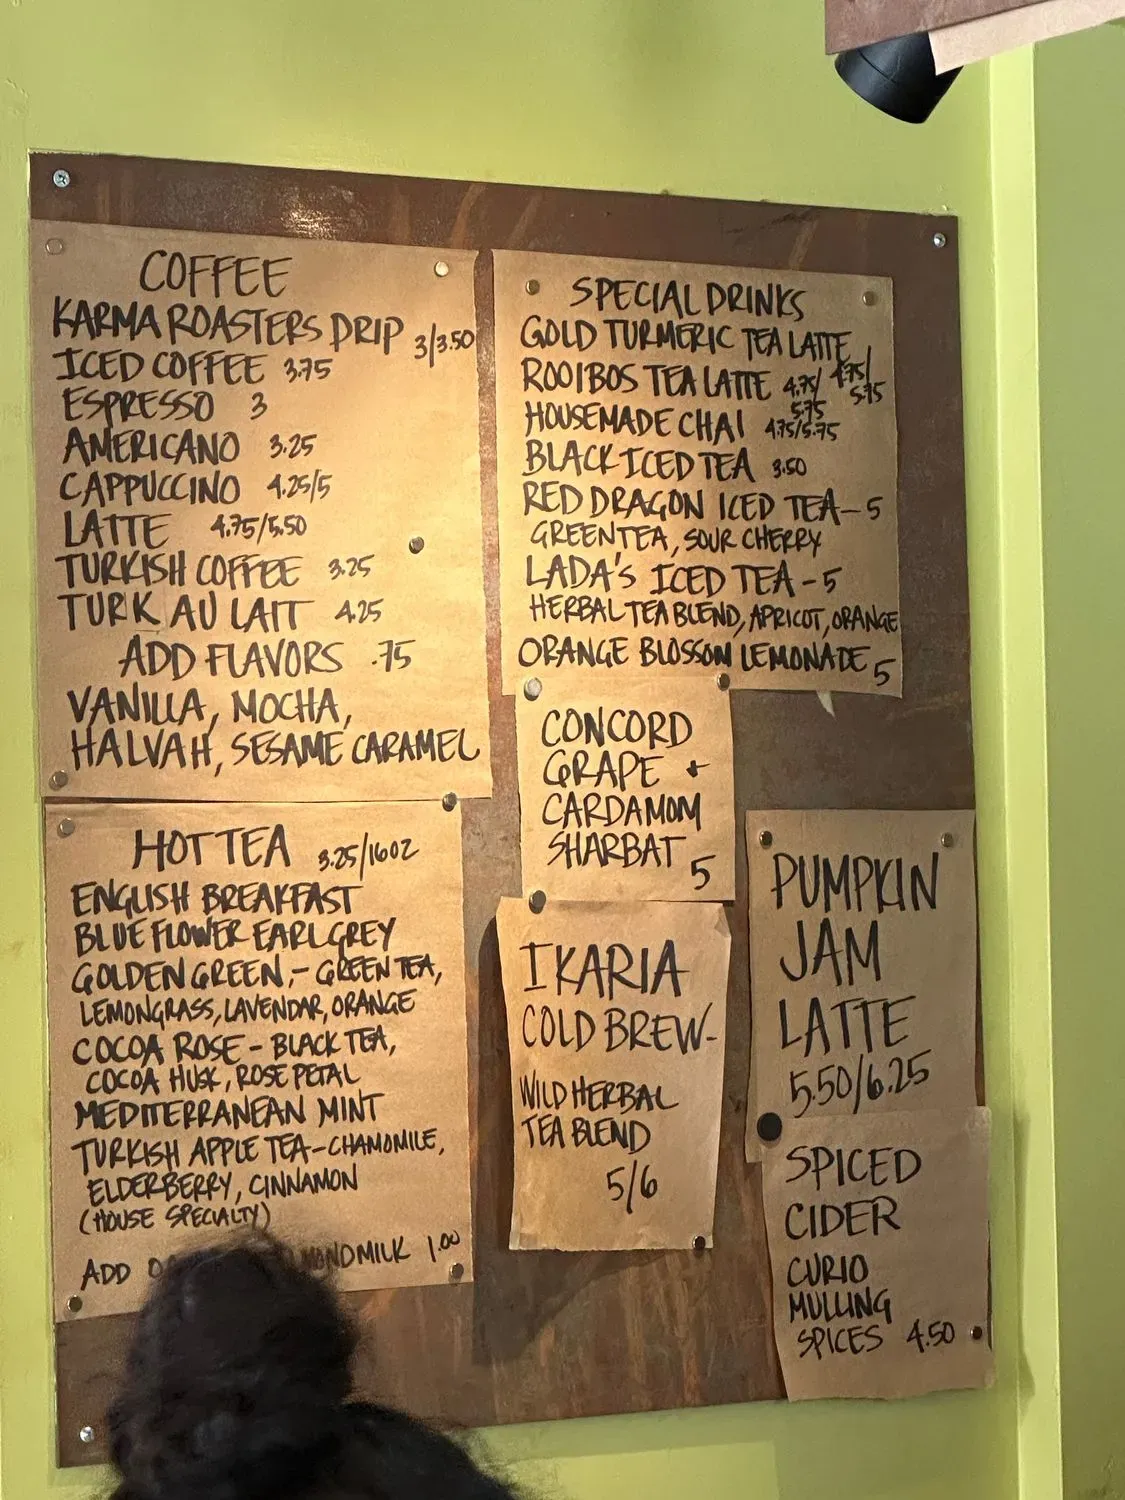 COFFEE
KARMA ROASTERS DRIP 3/3.50
ICED COFFEE 3.75
ESPRESSO 3
AMERICANO 3.25
CAPPUCCINO 4.25/5
LATTE 4.75/5.50
TURKISH COFFEE 3.25
TURK AU LAIT 4.25
ADD FLAVORS .75
VANILLA, MOCHA,
HALVAH, SESAME CARAMEL
HOT TEA 3.25/16OZ
ENGLISH BREAKFAST
BLUE FLOWER EARL GREY
GOLDEN GREEN,- GREEN TEA,
LEMONGRASS, LAVENDAR, ORANGE
COCOA ROSE - BLACK TEA,
COCOA HUSK, ROSE PETAL
MEDITERRANEAN MINT
TURKISH APPLE TEA-CHAMOMILE,
ELDERBERRY, CINNAMON
(HOUSE SPECIALTY)
ADD MILK 1.00
SPECIAL DRINKS
GOLD TURMERIC TEA LATTE 4.75/5.75
ROOIBOS TEA LATTE 4.75/5.75
HOUSEMADE CHAI 4.75/5.75
BLACK ICED TEA 3.50
RED DRAGON ICED TEA-5
GREEN TEA, SOUR CHERRY
LADA'S ICED TEA-5
HERBAL TEA BLEND, APRICOT, ORANGE
ORANGE BLOSSOM LEMONADE 5
CONCORD
GRAPE +
CARDAMOM
SHARBAT 5
IKARIA
COLD BREW-
WILD HERBAL
TEA BLEND
5/6
PUMPKIN
JAM
LATTE
5.50/6.25
SPICED
CIDER
CURIO
MULLING
SPICES 4.50